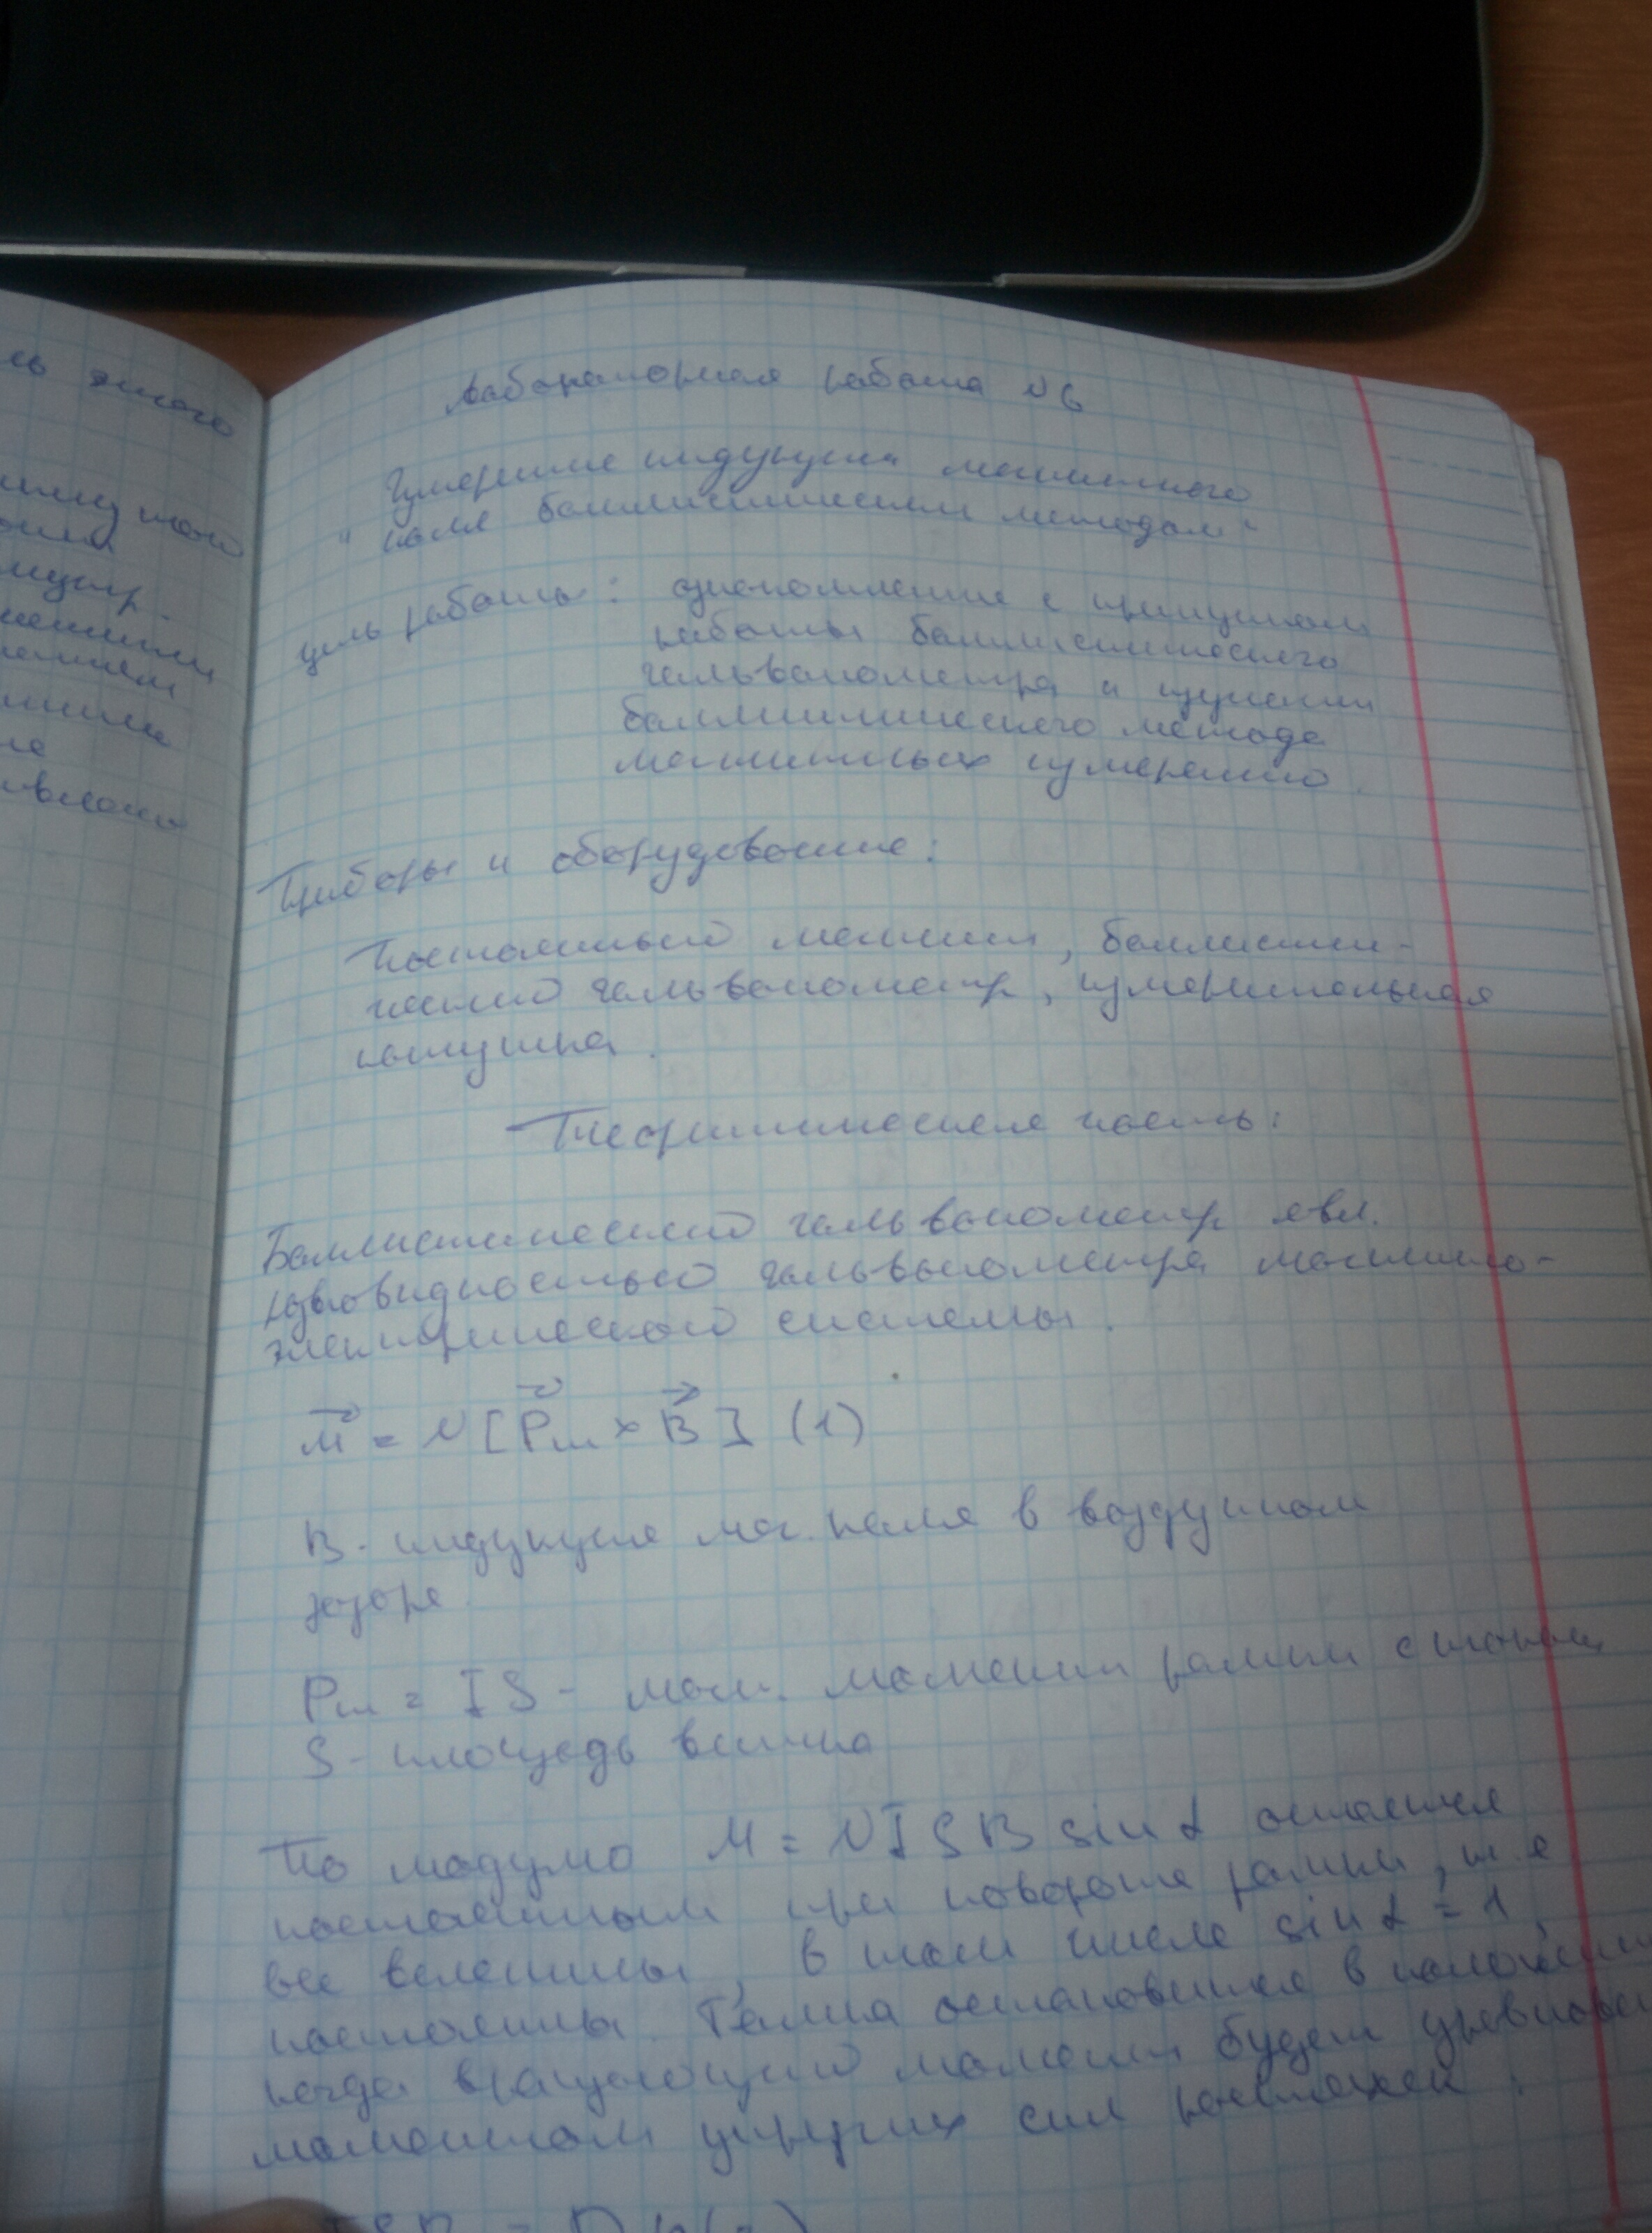 ль этого
Лабораторная работа N6
Измерение индукции магнитного
"поля баллистическим методом"
цель работы: ознакомление с принципом
работы баллистического
гальванометра и изучении
баллистического метода
магнитных измерений.
Приборы и оборудование:
Постоянный магнит, баллисти-
ческий гальванометр, измерительная
катушка.
Теоритическая часть:
Баллистический гальванометр явл.
разновидностью гальванометра магнито-
электрической системы.
M = N[Pm × B] (1)
B - индукция маг. поля в воздушном
зазоре
Pm = IS - маг. момент рамки с током
S - площадь витка
По модулю M = NISB sin α остаётся
постоянным при повороте рамки, т.е
все величины, в том числе sin α = 1
постоянны. Рамка остановится в положении
когда вращающий момент будет уравновешен
моментом упругих сил растяжек.